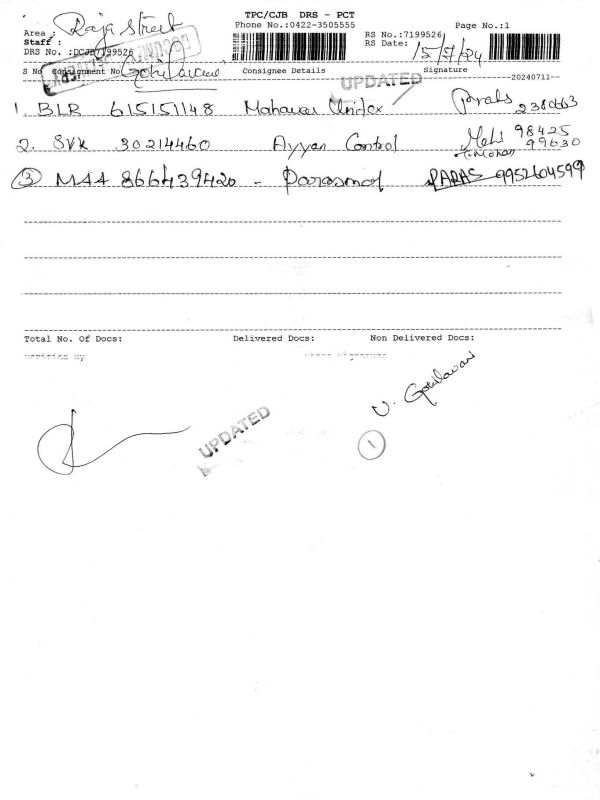 TPC/CJB DRS - PCT
Area : Raja Street
Phone No.:0422-3505555
RS No.:7199526
Page No.:1
Staff :
DRS No. :DCJB/7199526
RS Date: 15/7/24
S No Consignment No
Consignee Details
Signature
UPDATED
20240711
1. BLR 615151148 Mahavar Unitex 2380663
2. SVK 30214460 Ayyan Control 98425 99630
3 MAA 866439420 - Parasmal PARAS 9952604599
Total No. Of Docs:
Delivered Docs:
Non Delivered Docs:
UPDATED
1